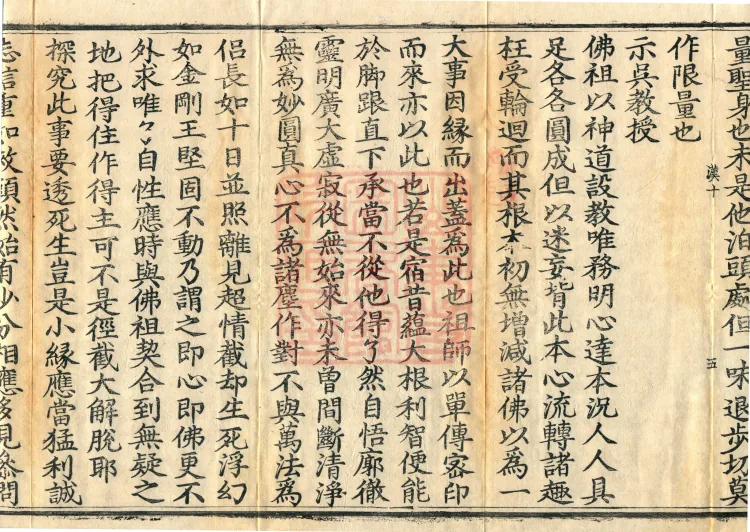 量聖身也未是他泊頭處但一味退步切莫
漢十 五
作限量也
示吳教授
佛祖以神道設教唯務明心達本況人人具
足各各圓成但以迷妄背此本心流轉諸趣
枉受輪迴而其根本初無增減諸佛以為一
大事因緣而出蓋為此也祖師以單傳密印
而來亦以此也若是宿昔蘊大根利智便能
於脚跟直下承當不從他得了然自悟廓徹
靈明廣大虛寂從無始來亦未曾間斷清淨
無為妙圓真心不為諸塵作對不與萬法為
侶長如十日並照離見超情截却生死浮幻
如金剛王堅固不動乃謂之即心即佛更不
外求唯了自性應時與佛祖契合到無疑之
地把得住作得主可不是徑截大解脫耶
探究此事要透死生豈是小緣應當猛利誠
志信重如救頭然始有少分相應多見參問